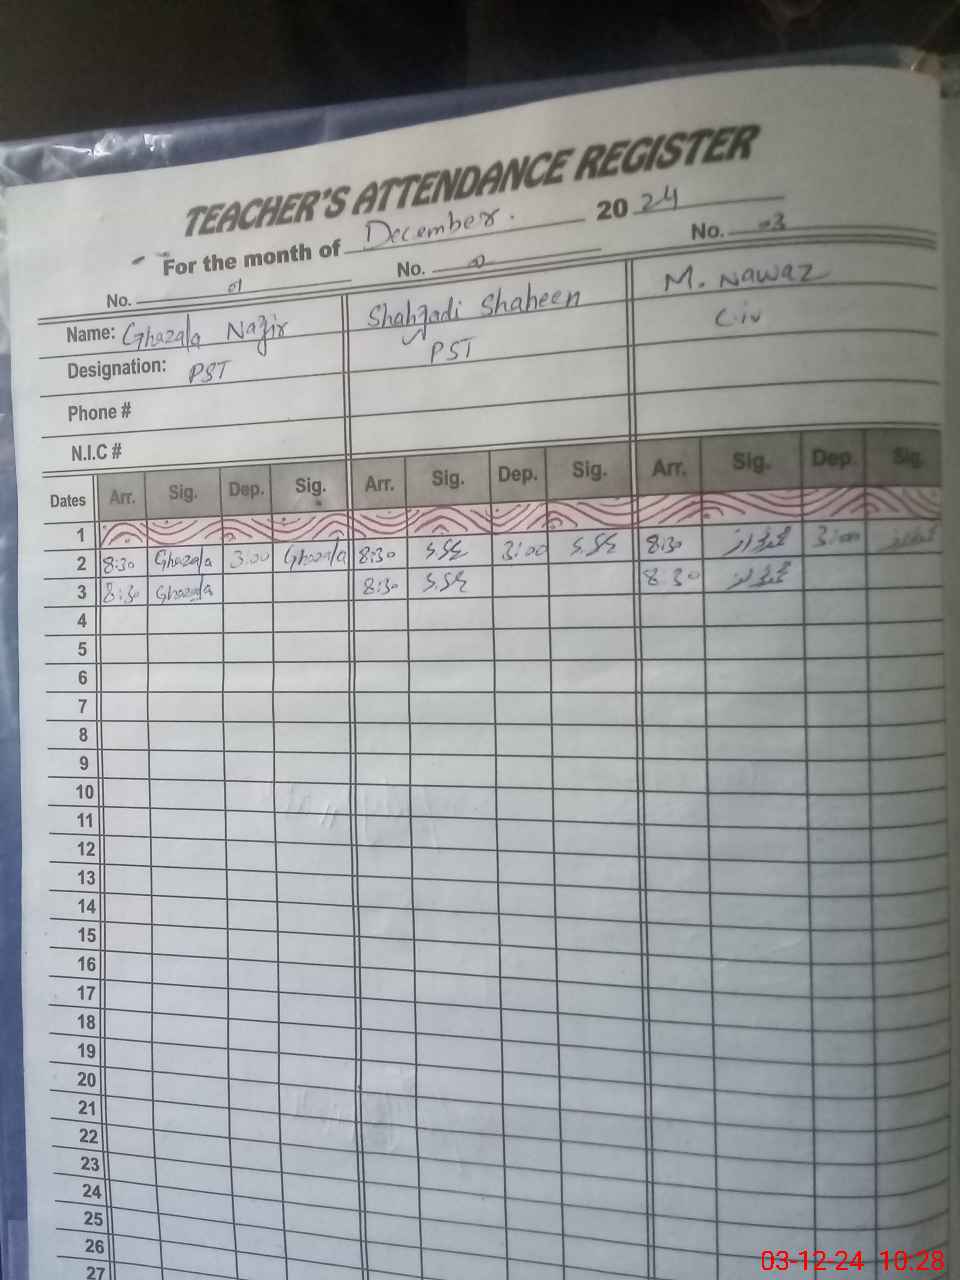 TEACHER'S ATTENDANCE REGISTER
For the month of December. 2024
No. 01 No. No. 03
Name: Ghazala Nazir Shahzadi Shaheen M. Nawaz
Designation: PST PST C.iv
Phone #
N.I.C #
Dates Arr. Sig. Dep. Sig. Arr. Sig. Dep. Sig. Arr. Sig. Dep. Sig.
1
2 8:30 Ghazala 3:00 Ghazala 8:30 3:00 8:30 3:00
3 8:30 Ghazala 8:30 8:30
4
5
6
7
8
9
10
11
12
13
14
15
16
17
18
19
20
21
22
23
24
25
26
27
03-12-24 10:28